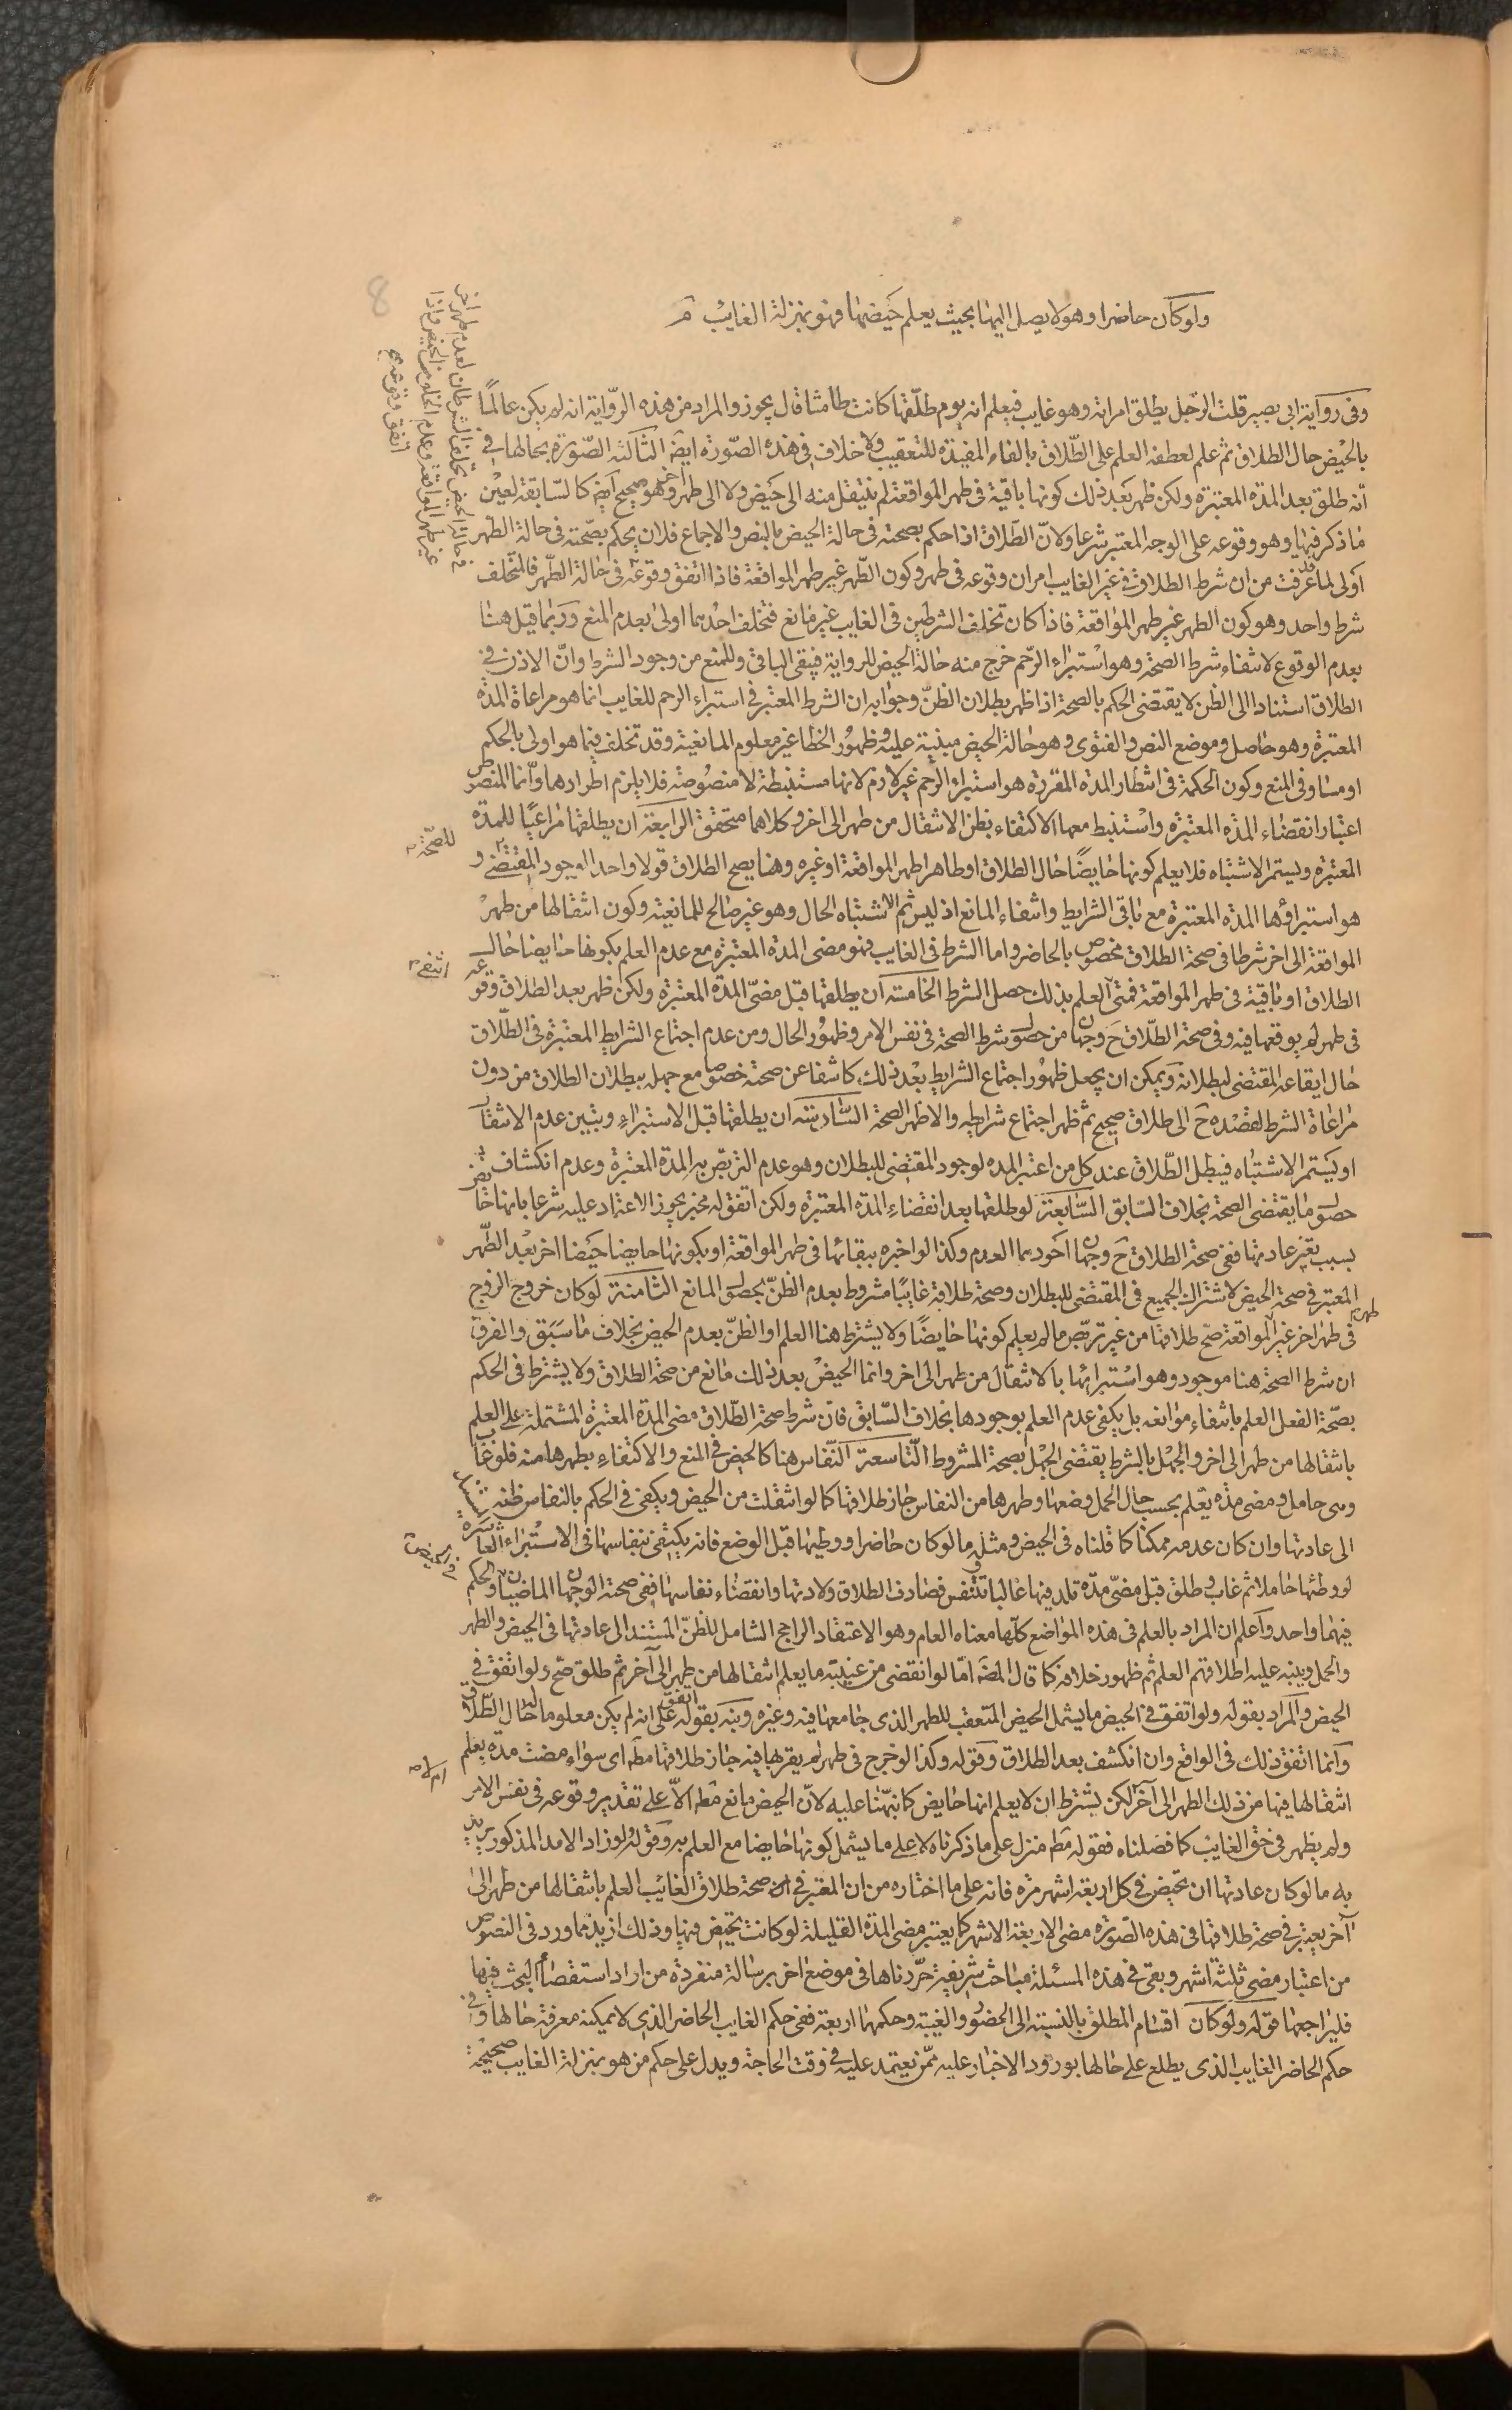 ولو كان حاضرا وهو لا يصل اليها بحيث يعلم حيضها فهو بمنزلة الغايب
وفى رواية ابى بصير قلت الرجل يطلق امراته وهو غايب فيعلم انه يوم طلقها كانت طامثا قال يجوز والمراد من هذه الرّواية انه لم يكن عالمًا
بالحيض حال الطلاق ثم علم لعطفه العلم على الطّلاق بالفاء المفيدة للتعقيب ولا خلاف فى هذه الصّورة ايضا الثالثة الصّورة بحالها فى
انّه طلق بعد المدة المعتبرة ولكن ظهر بعد ذلك كونها باقية فى طهر المواقعة لم ينتقل منه الى حيض ولا الى طهر اخر وهو صحيح ايضا كالسّابقة لعين
ما ذكر فيها وهو وقوعه على الوجه المعتبر شرعا ولانّ الطّلاق اذا حكم بصحته فى حالة الحيض بالنص والاجماع فلان يحكم بصحّته فى حالة الطهر
اولى لما قد عرفت من ان شرط الطلاق فى غير الغايب امران وقوعه فى طهر وكون الطّهر غير طهر المواقعة فاذا اتفق وقوعه فى حالة الطّهر فالتخلف
شرط واحد وهو كون الطهر غير طهر المواقعة فاذا كان تخلف الشرطين فى الغايب غير مانع فتخلف احدهما اولى بعدم المنع وربما قيل هنا
بعدم الوقوع لانتفاء شرط الصحة وهو استبراء الرّحم خرج منه حالة الحيض للرواية فيبقى الباقى وللمنع من وجود الشرط وانّ الاذن فى
الطلاق استنادا الى الظن لا يقتضى الحكم بالصحة اذا ظهر بطلان الظنّ وجوابه ان الشرط المعتبر فى استبراء الرحم للغايب انما هو مراعاة المدة
المعتبرة وهو حاصل وموضع النص والفتوى وهو حالة الحيض مبنية عليه وظهور الخطأ غير معلوم المانعية وقد تخلف فيما هو اولى بالحكم
او مساو فى المنع وكون الحكمة فى انتظار المدة المقررة هو استبراء الرّحم غير لازم لانها مستنبطة لا منصوصة فلا يلزم اطرادها وانّما المنصوص
اعتبار انقضاء المدة المعتبرة واستنبط معها الاكتفاء بظن الانتقال من طهر الى اخر وكلاهما متحقق الرابعة ان يطلقها مراعيًا للمدة
المعتبرة ويستمر الاشتباه فلا يعلم كونها حايضًا حال الطلاق او طاهرا طهر المواقعة او غيره وهنا يصح الطلاق قولا واحدا لوجود المقتضى و
للصّحة
هو استبراؤها المدة المعتبرة مع باقى الشرايط وانتفاء المانع اذ ليس ثم الا اشتباه الحال وهو غير صالح للمانعية وكون انتقالها من طهر
المواقعة الى اخر شرطا فى صحة الطلاق مخصوص بالحاضر واما الشرط فى الغايب فهو مضى المدة المعتبرة مع عدم العلم بكونها حايضا حال
الطلاق او باقية فى طهر المواقعة فمتى العلم بذلك حصل الشرط الخامسة ان يطلقها قبل مضىّ المدة المعتبرة ولكن ظهر بعد الطلاق وقوعه
انتفى
فى طهر لم يوقعها فيه وفى صحة الطّلاق ح وجهان من حصول شرط الصحة فى نفس الامر وظهور الحال ومن عدم اجتماع الشرايط المعتبرة فى الطّلاق
حال ايقاعه المقتضى لبطلانه ويمكن ان يجعل ظهور اجتماع الشرايط بعد ذلك كاشفا عن صحته خصوصا مع جهله ببطلان الطلاق من دون
مراعاة الشرط لقصده ح الى طلاق صحيح ثم ظهر اجتماع شرايطه والاظهر الصحة السّادسة ان يطلقها قبل الاستبراء ويتبين عدم الانتقال
او يستمر الاشتباه فيبطل الطّلاق عند كل من اعتبر المدة لوجود المقتضى للبطلان وهو عدم التربص به المدة المعتبرة وعدم انكشاف
حصول ما يقتضى الصحة بخلاف السّابق السّابعة لو طلقها بعد انقضاء المدة المعتبرة ولكن اتفق له مخبر يجوز الاعتماد عليه شرعا بانها حائض
بسبب تغير عادتها ففى صحة الطلاق ح وجهان اجودهما العدم وكذا لو اخبره ببقائها فى طهر المواقعة او بكونها حايضا حيضا اخر بعد الطّهر
المعتبر فى صحة الحيض لاشتراك الجميع فى المقتضى للبطلان وصحة طلاقه غايبًا مشروط بعدم الظنّ بحصول المانع الثامنة لو كان خروج الزوج
فى طهر اخر غير طهر المواقعة صحّ طلاقها من غير تربّص ما لم يعلم كونها حايضًا ولا يشترط هنا العلم او الظنّ بعدم الحيض بخلاف ما سبق والفرق
ان شرط الصحة هنا موجود وهو استبرائها بالانتقال من طهر الى اخر وانما الحيض بعد ذلك مانع من صحة الطلاق ولا يشترط فى الحكم
بصحّة الفعل العلم بانتفاء موانعه بل يكفى عدم العلم بوجودها بخلاف السّابق فان شرط صحة الطّلاق مضى المدة المعتبرة المشتملة على العلم
بانتقالها من طهر الى اخر والجهل بالشرط يقتضى الجهل بصحة المشروط التّاسعة النّفاس هنا كالحيض فى المنع والاكتفاء بطهرها منه فلو غاب
وهى حامل ومضى مدة يعلم بحسب حال الحمل وضعها وطهرها من النفاس جاز طلاقها كما لو انتقلت من الحيض ويكفى فى الحكم بالنفاس ظنه المستند
الى عادتها وان كان عدمه ممكنا كما قلناه فى الحيض ومثله ما لو كان حاضرا ووطيها قبل الوضع فانه يكتفى بنفاسها فى الاستبراء العاشرة
لو وطئها حاملا ثم غاب وطلق قبل مضىّ مدّة تلد فيها غالبا وتنفس فصادف الطلاق ولادتها وانقضاء نفاسها ففى صحته الوجهان الماضيان والحكم
فيهما واحد واعلم ان المراد بالعلم فى هذه المواضع كلّها معناه العام وهو الاعتقاد الراجح الشامل للظنّ المستند الى عادتها فى الحيض والطهر
والحمل وينبه عليه اطلاقهم العلم ثم ظهور خلافه كما قال المصّ امّا لو انقضى من غيبته ما يعلم انتقالها من طهر الى آخر ثم طلق صحّ ولو اتفق فى
الحيض والمراد بقوله ولو اتفق فى الحيض ما يشمل الحيض المتعقب للطهر الذى جامعها فيه وغيره ونبّه بقوله اتفق على انه لم يكن معلوما له حال الطّلاق
وانما اتفق ذلك فى الواقع وان انكشف بعد الطلاق وقوله وكذا لو خرج فى طهر لم يقربها فيه جاز طلاقها مطه اى سواء مضت مدة يعلم
انتقالها فيها من ذلك الطهر الى آخر لكن يشترط ان لا يعلم انها حايض كما نبّهنا عليه لانّ الحيض مانع مطه الاّ على تقدير وقوعه فى نفس الامر
ام لا
ولم يظهر فى حق الغايب كما فصلناه فقوله مطه منزل على ما ذكرناه لا على ما يشمل كونها حايضا مع العلم به وقوله لو زاد الامد المذكور يريد
به ما لو كان عادتها ان تحيض فى كل اربعة اشهر مرّة فانه على ما اختاره من ان المعتبر فى صحة طلاق الغائب العلم بانتقالها من طهر الى
آخر يعتبر فى صحة طلاقها فى هذه الصّورة مضى الاربعة الاشهر كما يعتبر مضى المدة القليلة لو كانت تحيض فيها وذلك ازيد مما ورد فى النصوص
من اعتبار مضى ثلثة اشهر وبقى فى هذه المسئلة مباحث شريفة حرّرناها فى موضع اخر برسالة منفردة من اراد استقصاء البحث فيها
فليراجعها قوله ولو كان اقسام المطلق بالنسبة الى الحضور والغيبة وحكمهما اربعة ففى حكم الغايب الحاضر الذى لا يمكنه معرفة حالها وفى
حكم الحاضر الغايب الذى يطلع على حالها بورود الاخبار عليه ممّن يعتمد عليه فى وقت الحاجة ويدل على حكم من هو بمنزلة الغايب صحيحة